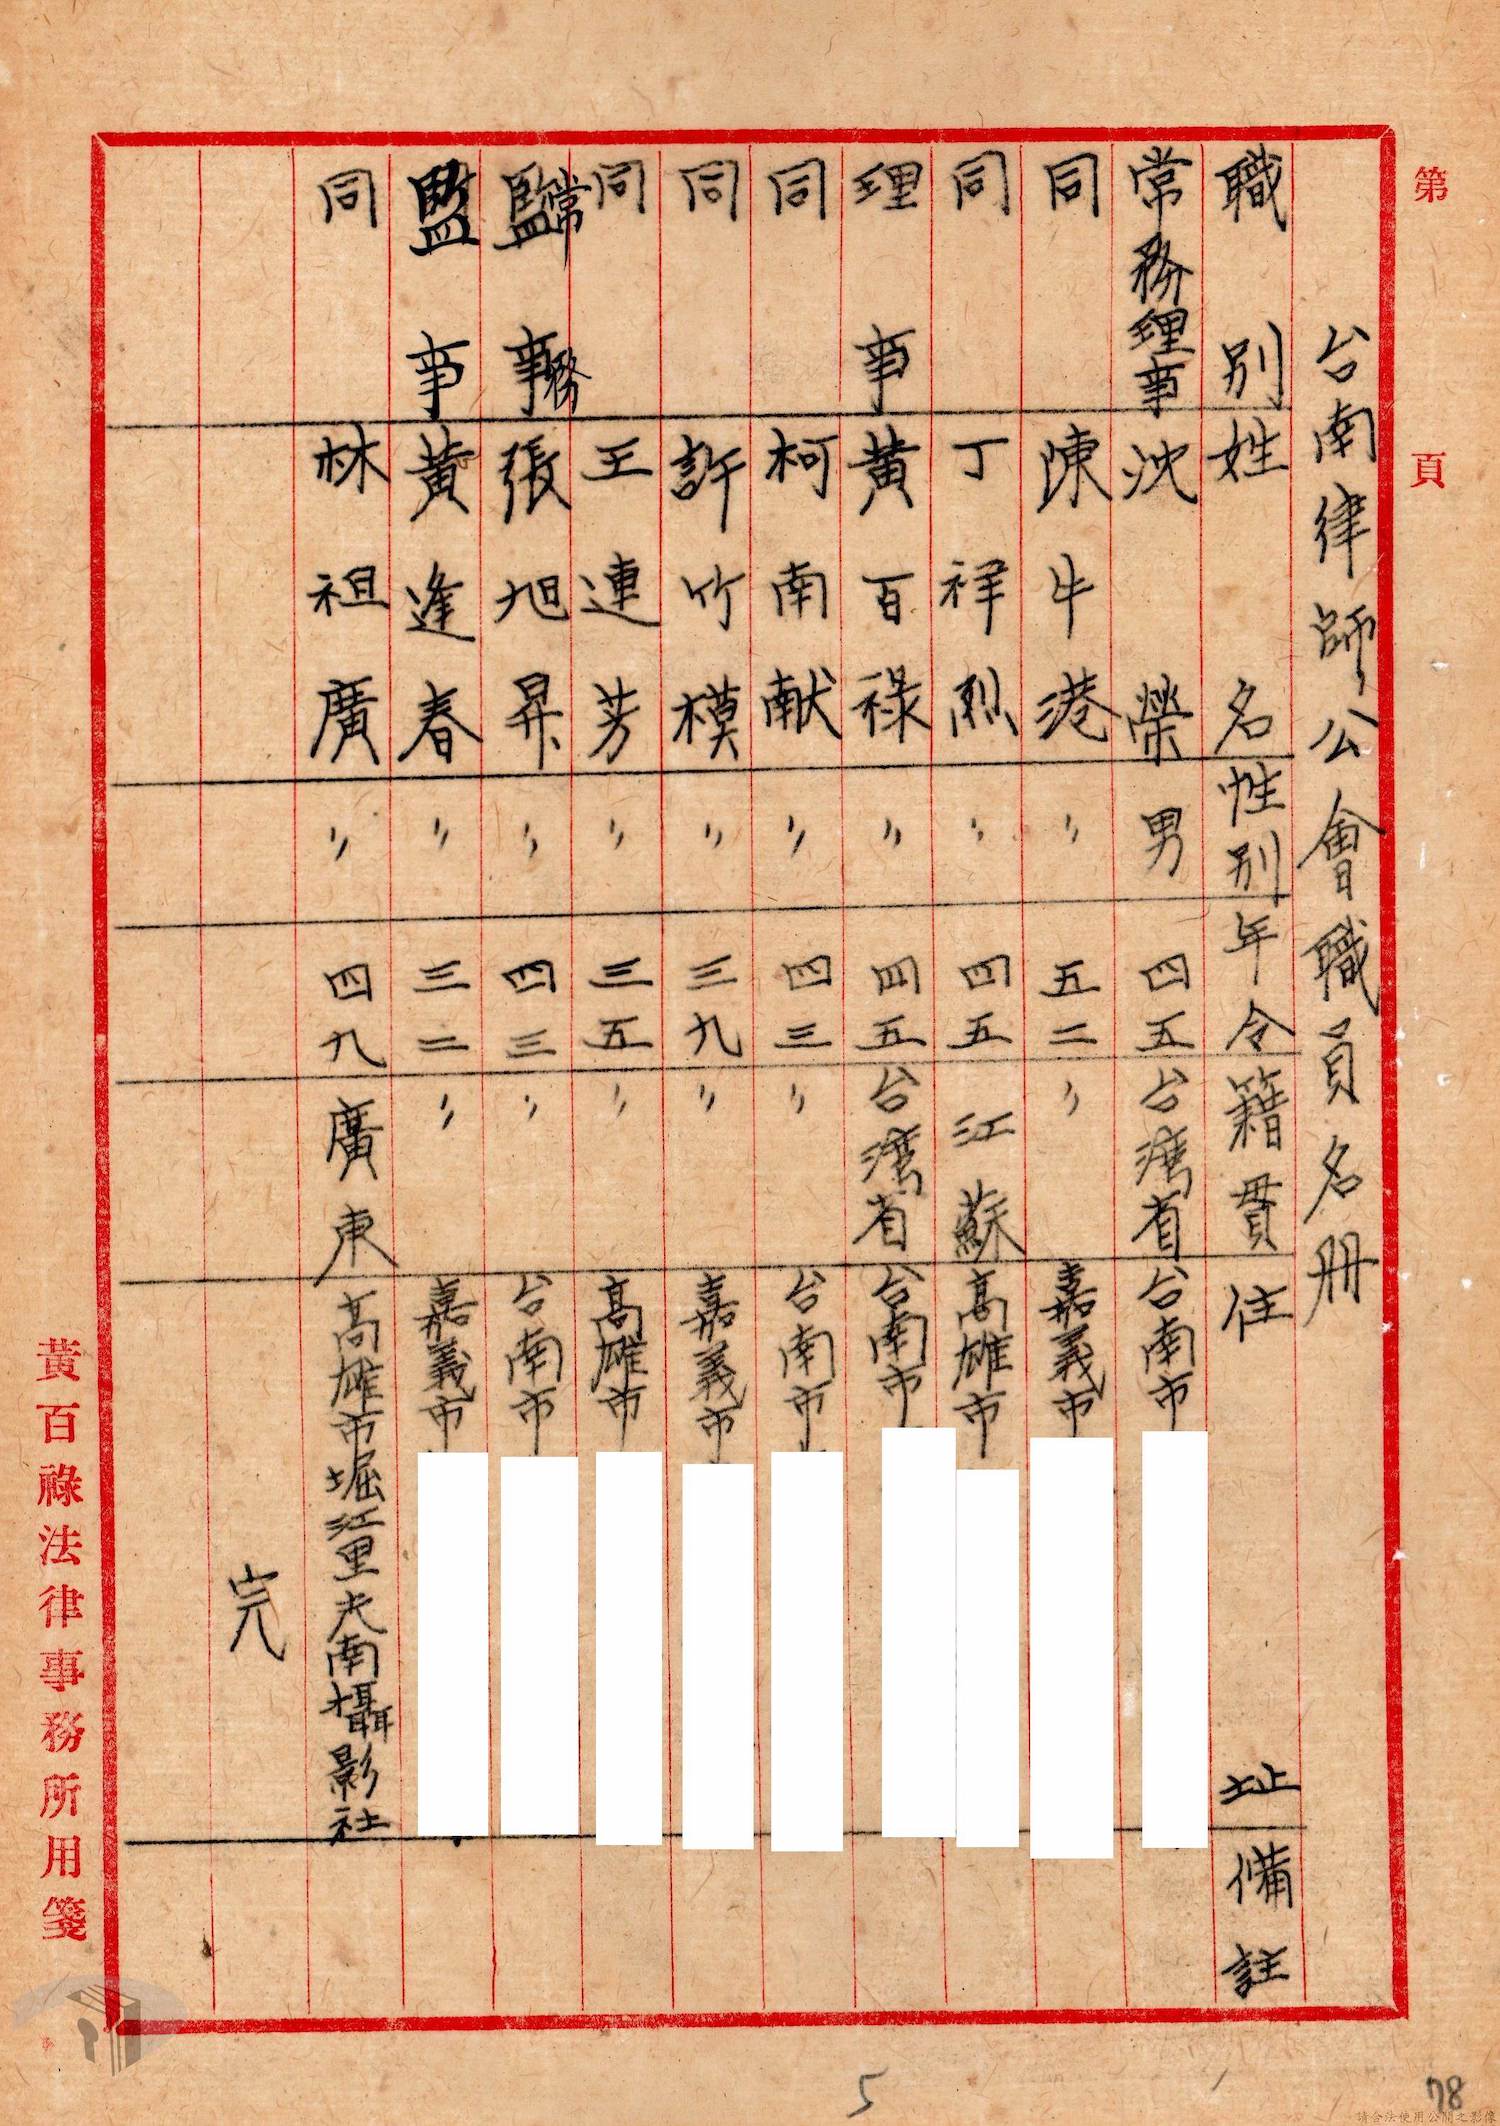 第 頁
台南律師公會職員名冊
職別 姓名 性別 年令 籍貫 住址 備註
常務理事 沈榮 男 四五 台灣省 台南市
同 陳牛港 〃 五二 〃 嘉義市
同 丁祥烈 〃 四五 江蘇 高雄市
理事 黃百祿 〃 四五 台灣省 台南市
同 柯南献 〃 四三 〃 台南市
同 許竹模 〃 三九 〃 嘉義市
同 王連芳 〃 三五 〃 高雄市
常務監事 張旭昇 〃 四三 〃 台南市
監事 黃逢春 〃 三二 〃 嘉義市
同 林祖廣 〃 四九 廣東 高雄市堀江里大南攝影社
完
黃百祿法律事務所用箋
5
78
請合法使用公開之影像